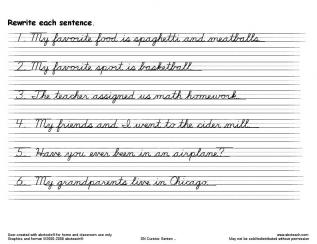 Rewrite each sentence.
1. My favorite food is spaghetti and meatballs.
2. My favorite sport is basketball.
3. The teacher assigned us math homework.
4. My friends and I went to the cider mill.
5. Have you ever been in an airplane?
6. My grandparents live in Chicago.
User created with abcteach® for home and classroom use only
www.abcteach.com
Graphics and format ©2000-2008 abcteach®
DN Cursive
May not be sold/distributed without permission